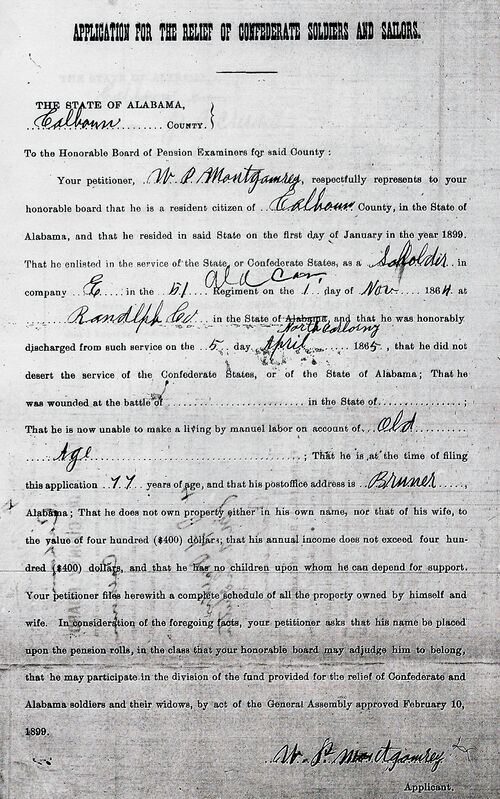 APPLICATION FOR THE RELIEF OF CONFEDERATE SOLDIERS AND SAILORS.
THE STATE OF ALABAMA,
Calhoun COUNTY.
To the Honorable Board of Pension Examiners for said County:
Your petitioner, W P Montgamrey, respectfully represents to your
honorable board that he is a resident citizen of Calhoun County, in the State of
Alabama, and that he resided in said State on the first day of January in the year 1899.
That he enlisted in the service of the State, or Confederate States, as a Soholder in
Ala Cav,
company E in the 51 Regiment on the 1, day of Nov 1864 at
Randlph Co in the State of Alabama, and that he was honorably
North Carloiny
discharged from such service on the 5 day April 1865, that he did not
desert the service of the Confederate States, or of the State of Alabama; That he
was wounded at the battle of in the State of ;
That he is now unable to make a living by manuel labor on account of Old
Age ; That he is at the time of filing
this application 77 years of age, and that his postoffice address is Bruner,
Alabama; That he does not own property either in his own name, nor that of his wife, to
the value of four hundred ($400) dollars; that his annual income does not exceed four hun-
dred ($400) dollars, and that he has no children upon whom he can depend for support.
Your petitioner files herewith a complete schedule of all the property owned by himself and
wife. In consideration of the foregoing facts, your petitioner asks that his name be placed
upon the pension rolls, in the class that your honorable board may adjudge him to belong,
that he may participate in the division of the fund provided for the relief of Confederate and
Alabama soldiers and their widows, by act of the General Assembly approved February 10,
1899.
W. P. Montgamrey
Applicant.